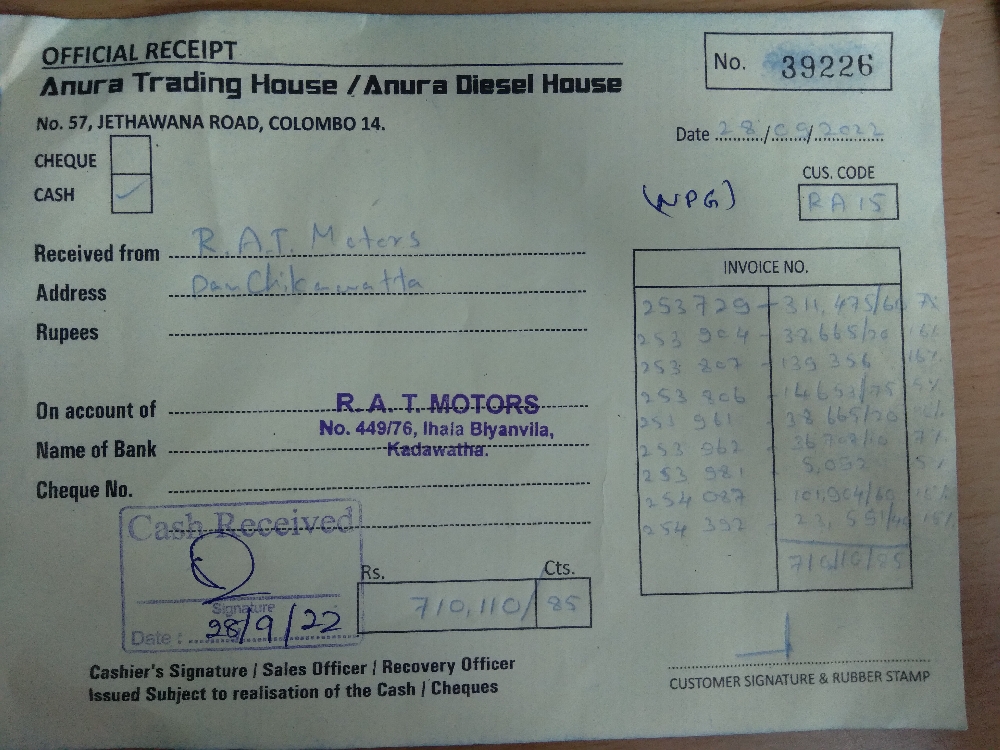 OFFICIAL RECEIPT
Anura Trading House / Anura Diesel House
No. 57, JETHAWANA ROAD, COLOMBO 14.
No. 39226
Date 28/09/2022
CHEQUE
CASH ✓
CUS. CODE
(NPG) RA15
Received from R.A.T. Motors
Address
Rupees
On account of R. A. T. MOTORS
No. 449/76, Ihala Biyanvila,
Name of Bank Kadawatha.
Cheque No.
INVOICE NO.
253729 - 311,475/60 7%
253 904 - 38,665/20 16%
253 807 - 139 356 16%
253 806 - 14653/75 5%
253 961 - 38 665/20
253 962 - 7%
253 981 - 5,052 5%
254 087 - 101,904/60 16%
254 392 - 15%
Cash Received
Signature
Date : 28/9/22
Rs. Cts.
710,110/ 85
Cashier's Signature / Sales Officer / Recovery Officer
Issued Subject to realisation of the Cash / Cheques
CUSTOMER SIGNATURE & RUBBER STAMP